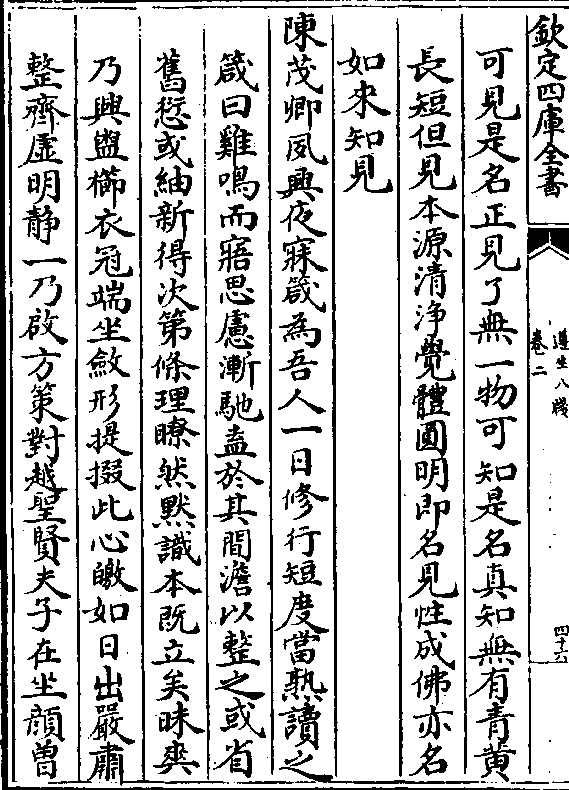 欽定四庫全書
遵生八牋
卷二
四十六
可見是名正見了無一物可知是名真知無有青黃
長短但見本源清淨覺體圓明即名見性成佛亦名
如來知見
陳茂卿夙興夜寐箴為吾人一日修行短度當熟讀之
箴曰雞鳴而寤思慮漸馳盍於其間澹以整之或省
舊愆或紬新得次第條理瞭然默識本既立矣昧爽
乃興盥櫛衣冠端坐斂形提掇此心皦如日出嚴肅
整齊虛明静一乃啟方策對越聖賢夫子在坐顏曽